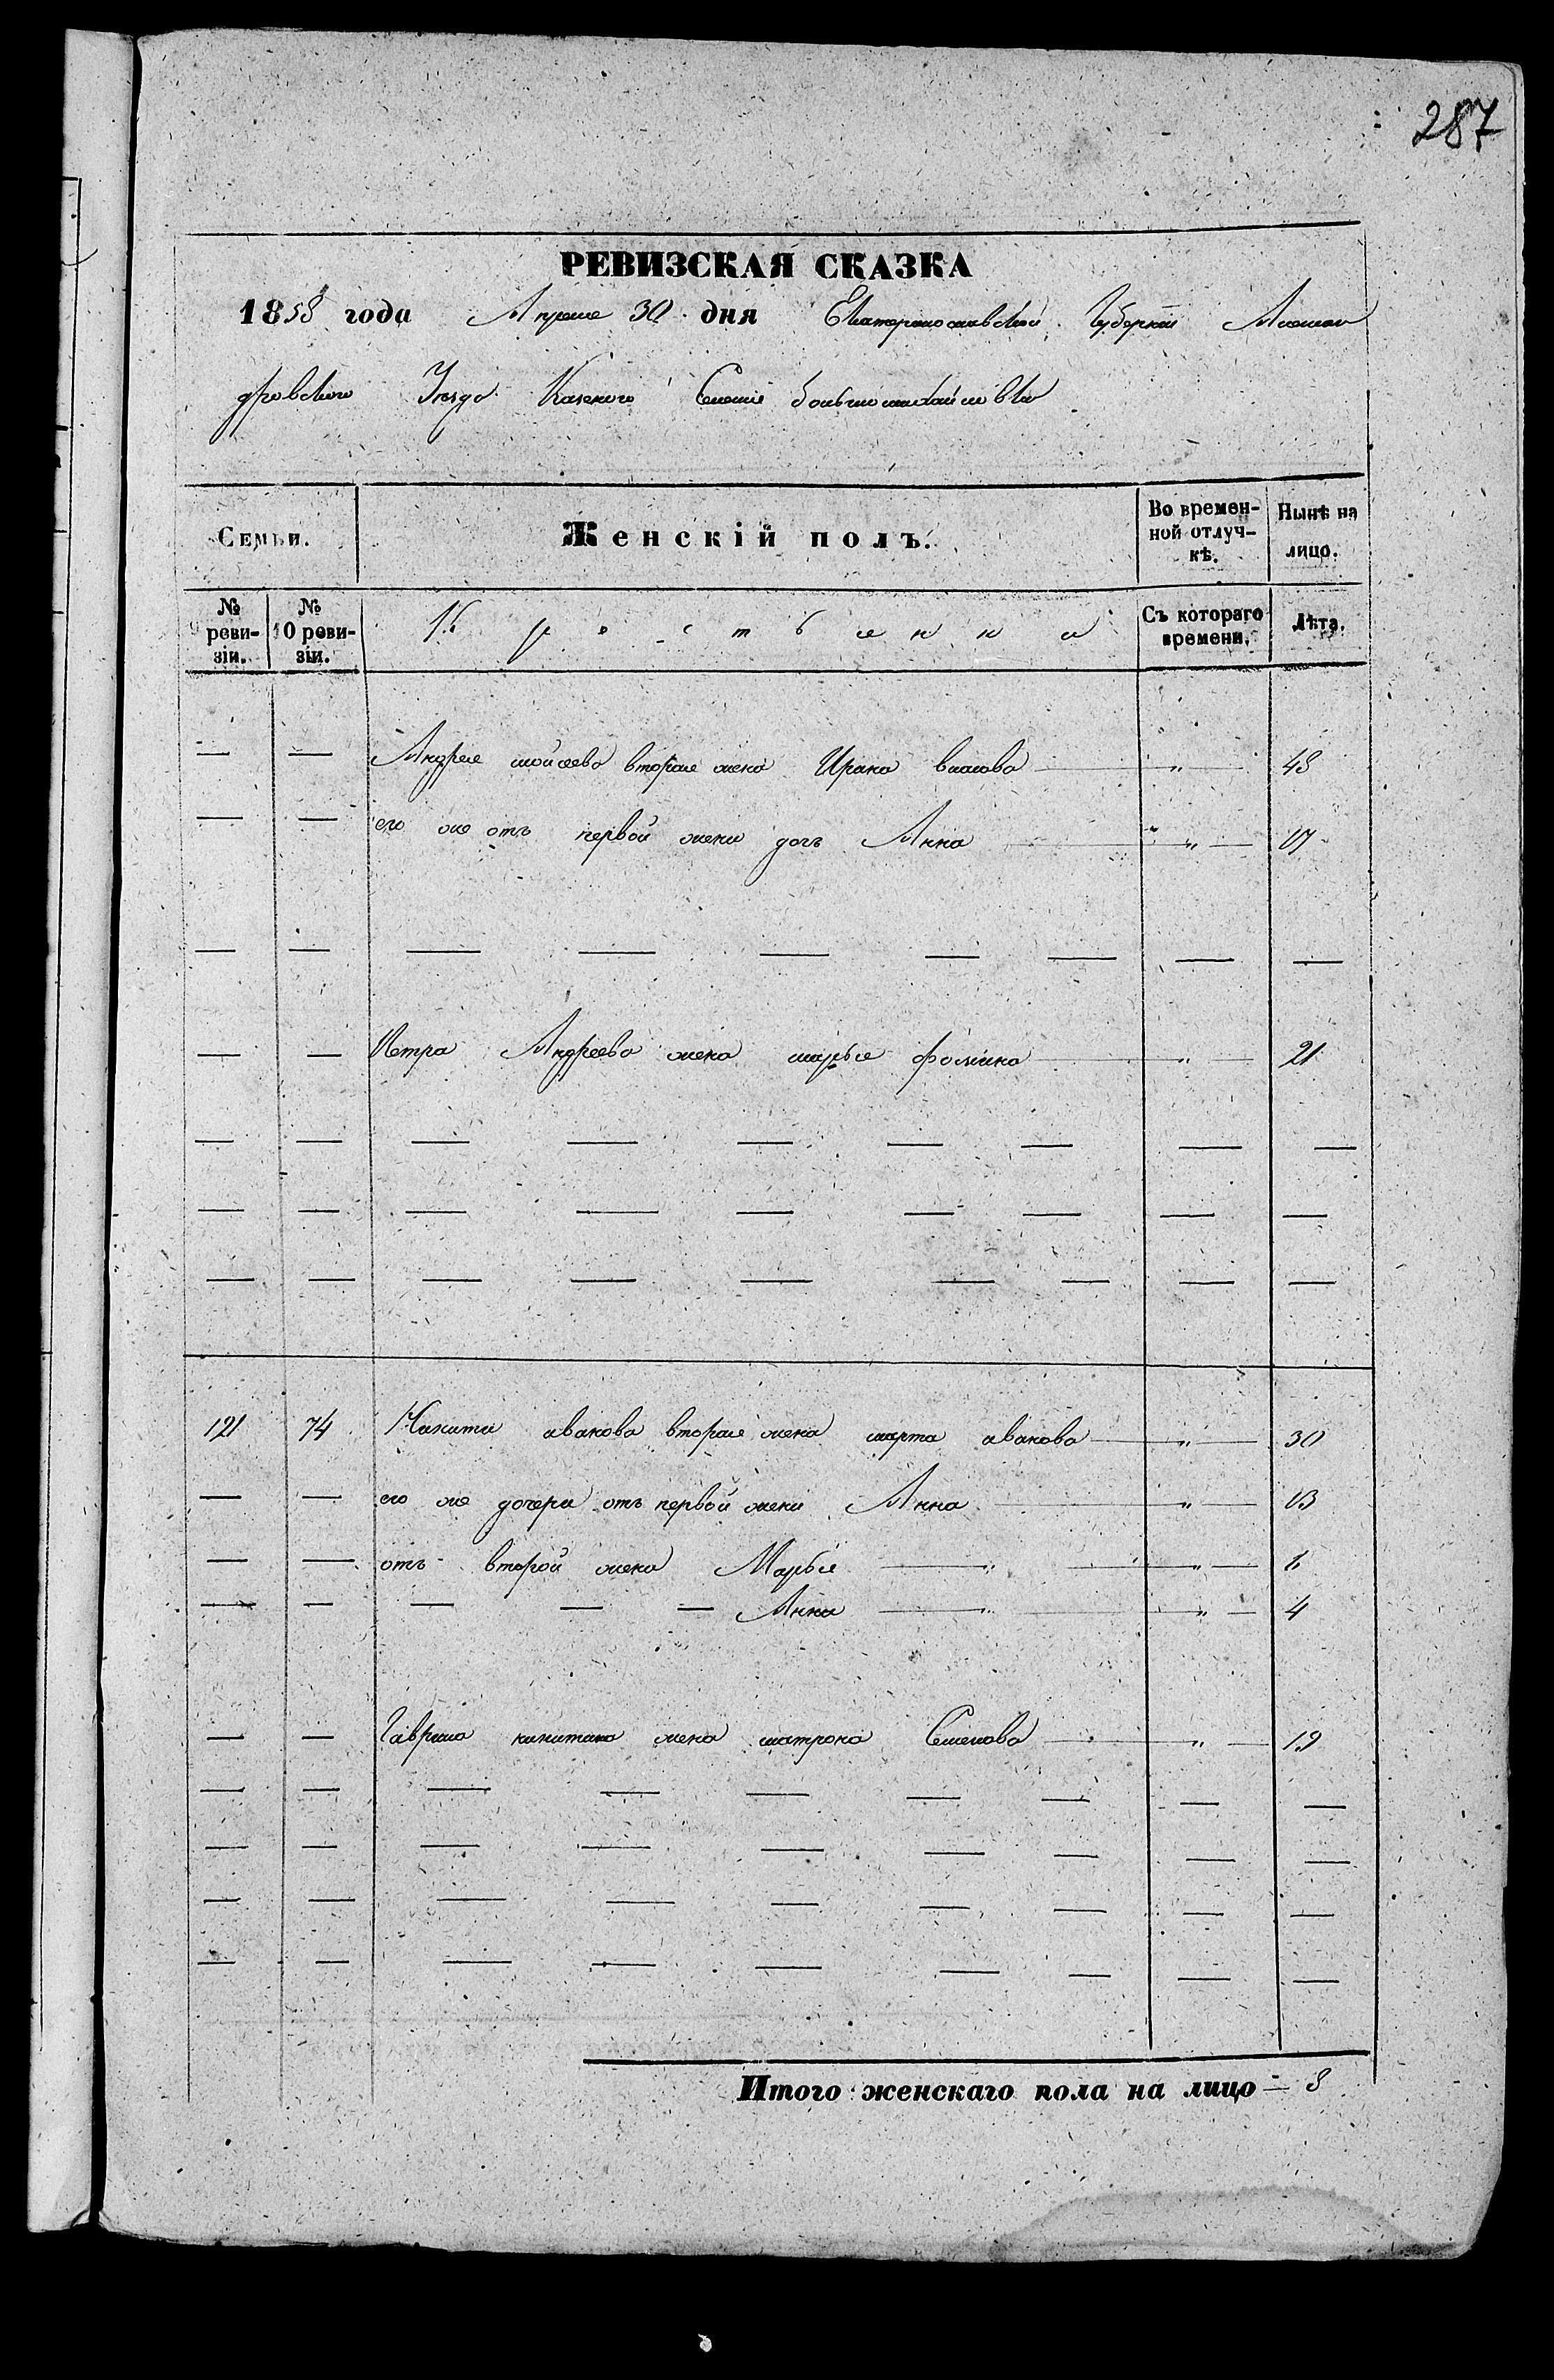 287
РЕВИЗСКАЯ СКАЗКА
1858 года Апреля 30 дня Екатеринославской Губернiи Алексан
дровского Уезда Казеного Селенiя большомихайловки
Семьи.
Женскiй полъ.
Во времен-
ной отлуч-
кѣ.
Нынѣ на
лицо.
№
9 реви-
зiи.
№
10 реви-
зiи.
Крестьянка
Съ котораго
времени.
Лѣта.
— — Андрея мойсеева вторая жена Ирина власова — " — 48
— — его же отъ первой жени дочь Анна — " — 17
— — Петра Андреева жена марья фомина — " — 21
121 74 Никити иванова вторая жена марта иванова — " — 30
— — его же дочери отъ первой жени Анна — " — 13
— — отъ второй жени Марья — " — " — 6
— — — — — Анна — " — " — 4
— — Гаврила никитина жена матрона Семенова — " — 19
Итого женскаго пола на лицо — 8